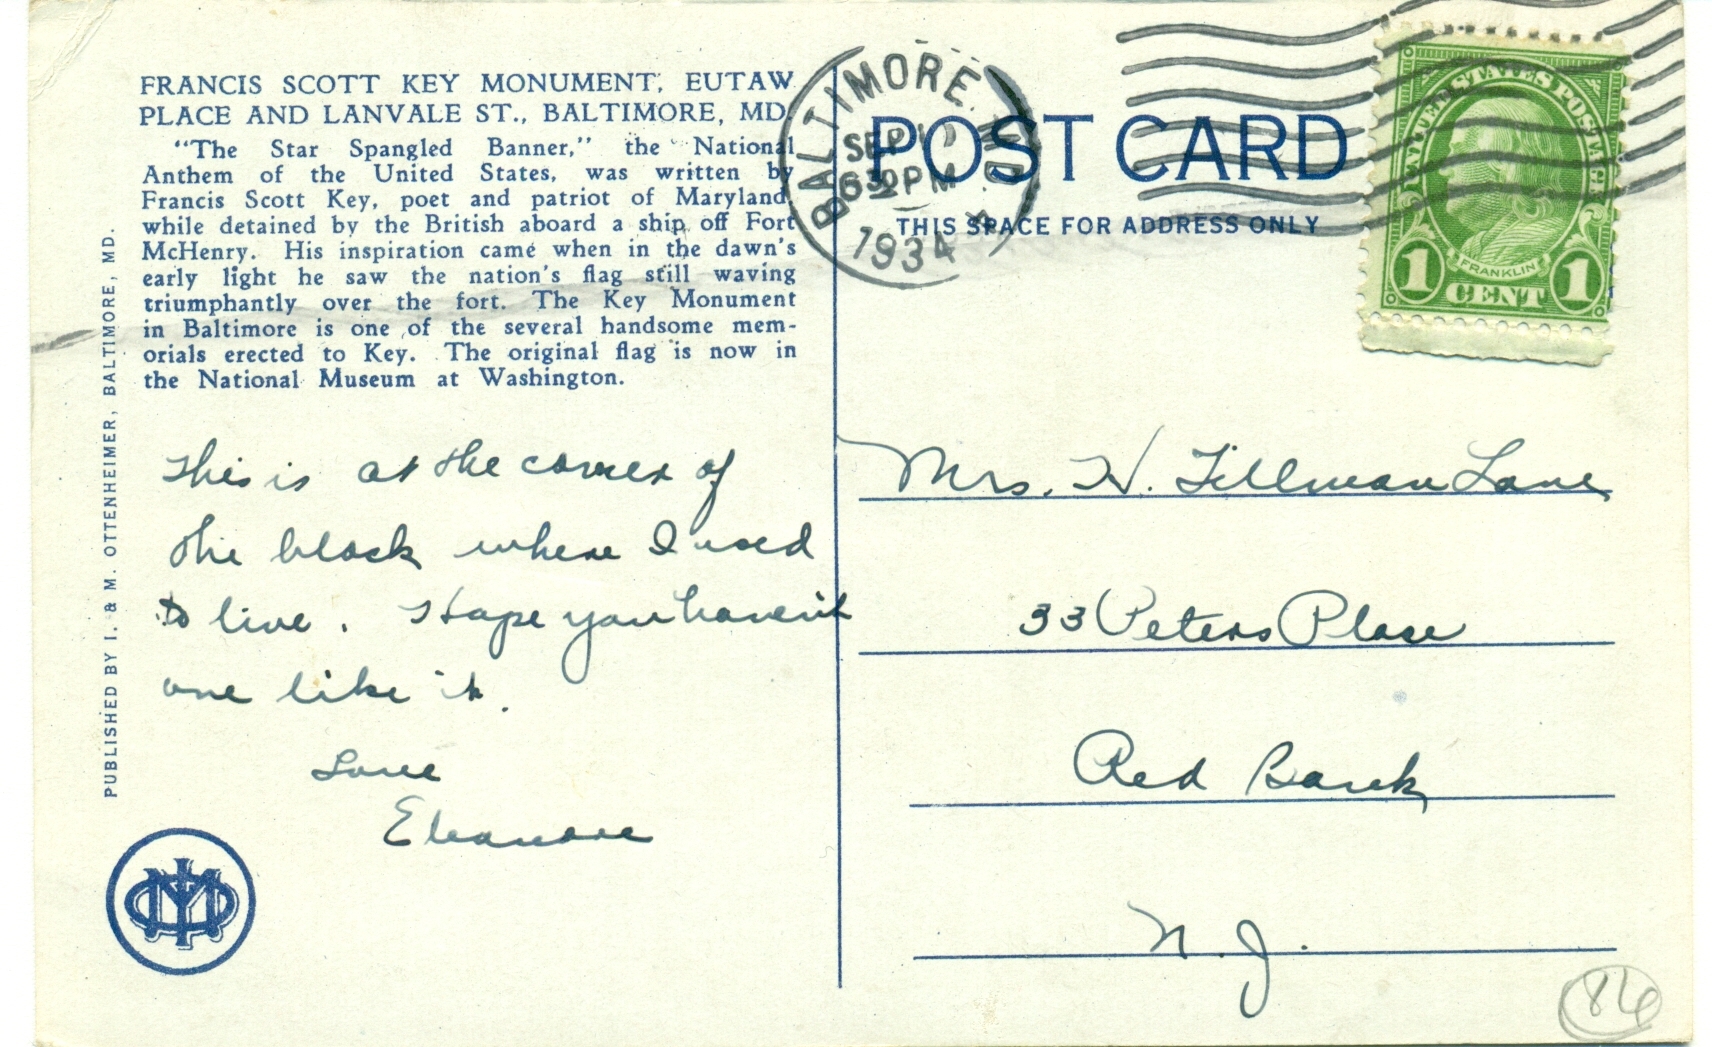 FRANCIS SCOTT KEY MONUMENT, EUTAW
PLACE AND LANVALE ST., BALTIMORE, MD.
"The Star Spangled Banner," the National
Anthem of the United States, was written by
Francis Scott Key, poet and patriot of Maryland
while detained by the British aboard a ship off Fort
McHenry. His inspiration came when in the dawn's
early light he saw the nation's flag still waving
triumphantly over the fort. The Key Monument
in Baltimore is one of the several handsome mem-
orials erected to Key. The original flag is now in
the National Museum at Washington.
PUBLISHED BY I. & M. OTTENHEIMER, BALTIMORE, MD.
This is at the corner of
the block where I used
to live. Hope you haven't
one like it.
Love
Eleanore
BALTIMORE, MD.
SEP
6 30 PM
1934
POST CARD
THIS SPACE FOR ADDRESS ONLY
UNITED STATES POSTAGE
FRANKLIN
1 CENT 1
Mrs. H. Tillman Lane
33 Peters Place
Red Bank
N. J.
86